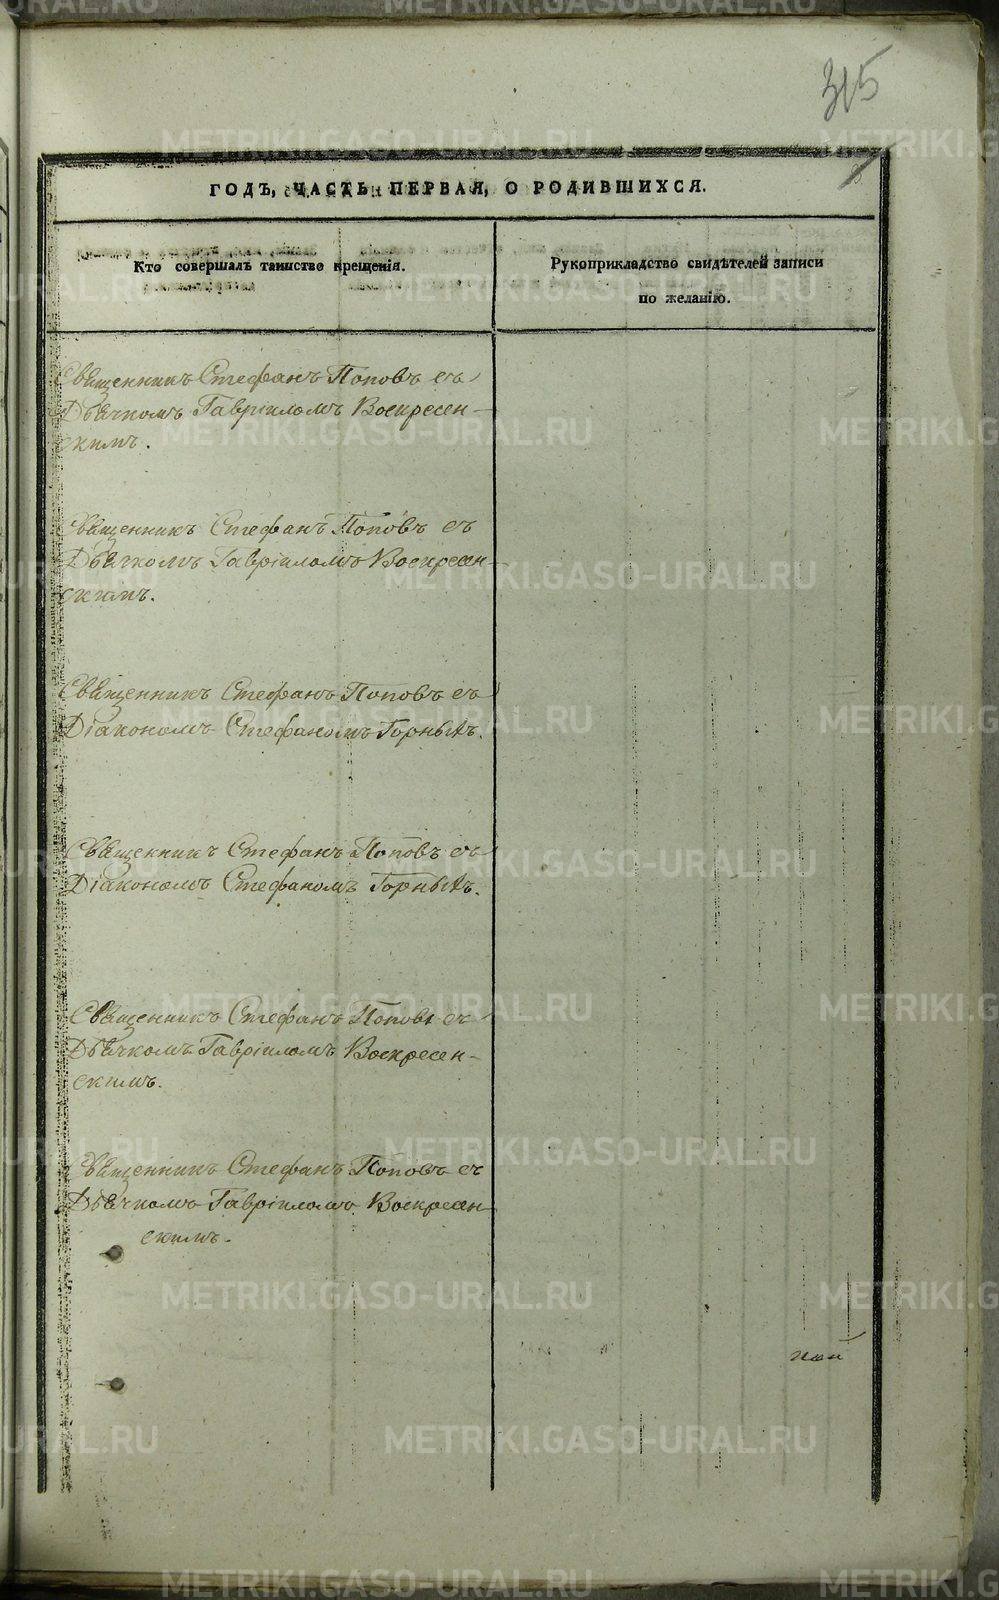 315
ГОДЪ, ЧАСТЬ ПЕРВАЯ, О РОДИВШИХСЯ.
Кто совершалъ таинство крещенія.
Рукоприкладство свидѣтелей записи
по желанію.
Священникъ Стефанъ Поповъ съ
Дьячкомъ Гавріиломъ Воскресен-
скимъ.
Священникъ Стефанъ Поповъ съ
Дьячкомъ Гавріиломъ Воскресен-
скимъ.
Священникъ Стефанъ Поповъ съ
Діакономъ Стефаномъ Горныхъ.
Священникъ Стефанъ Поповъ съ
Діакономъ Стефаномъ Горныхъ.
Священникъ Стефанъ Поповъ съ
Дьячкомъ Гавріиломъ Воскресен-
скимъ.
Священникъ Стефанъ Поповъ съ
Дьячкомъ Гавріиломъ Воскресен-
скимъ.
METRIKI.GASO-URAL.RU